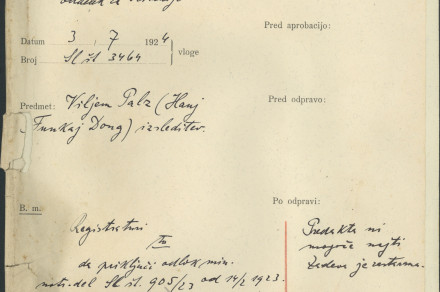 Pred aprobacijo:
Datum 3 / 7 1924
Broj Sl. št. 3464 vloge
Predmet: Viljem Palz (Hanj
Funkaj Dong) izsleditev.
Pred odpravo:
B. m.
Registraturi
da priključi odlok. min.
notr. del Sl. št. 905/23 od 14/2 1923.
Po odpravi:
Predakta ni
mogoče najti
Zadeva je